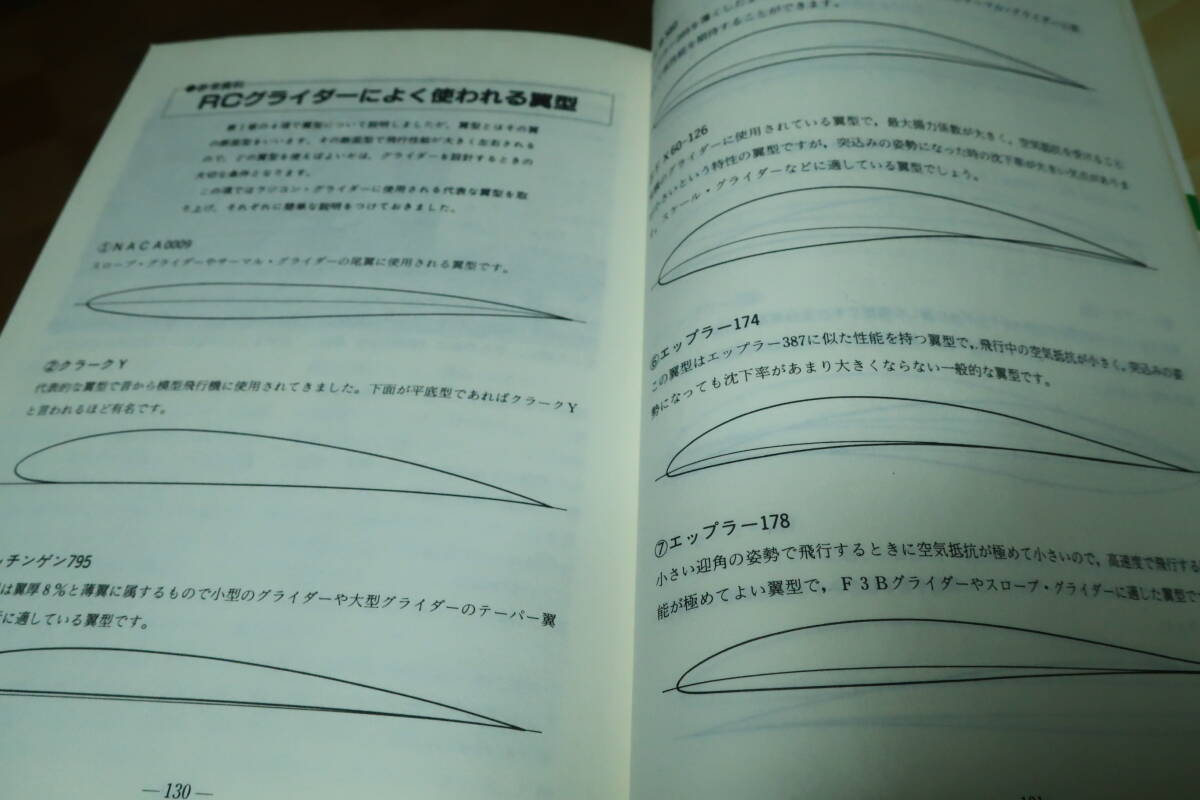 ●参考資料
RCグライダーによく使われる翼型
第1章の4項で翼型について説明しましたが、翼型とはその翼
の断面型をいいます。その断面型で飛行性能が大きく左右される
ので、どの翼型を使えばよいかは、グライダーを設計するときの
大切な条件となります。
この項ではラジコン・グライダーに使用される代表な翼型を取
り上げ、それぞれに簡単な説明をつけておきました。
①NACA0009
スロープ・グライダーやサーマル・グライダーの尾翼に使用される翼型です。
②クラークY
代表的な翼型で昔から模型飛行機に使用されてきました。下面が平底型であればクラークY
と言われるほど有名です。
ッチンゲン795
は翼厚8%と薄翼に属するもので小型のグライダーや大型グライダーのテーパー翼
に適している翼型です。
—130—
を期待することができます。
X60-126
グライダーに使用されている翼型で、最大揚力係数が大きく、空気抵抗を受けること
小さいという特性の翼型ですが、突込みの姿勢になった時の沈下率が大きい欠点がありま
スケール・グライダーなどに適している翼型でしょう。
⑥エップラー174
この翼型はエップラー387に似た性能を持つ翼型で、飛行中の空気抵抗が小さく、突込みの姿
勢になっても沈下率があまり大きくならない一般的な翼型です。
⑦エップラー178
小さい迎角の姿勢で飛行するときに空気抵抗が極めて小さいので、高速度で飛行する
能が極めてよい翼型で、F3Bグライダーやスロープ・グライダーに適した翼型で